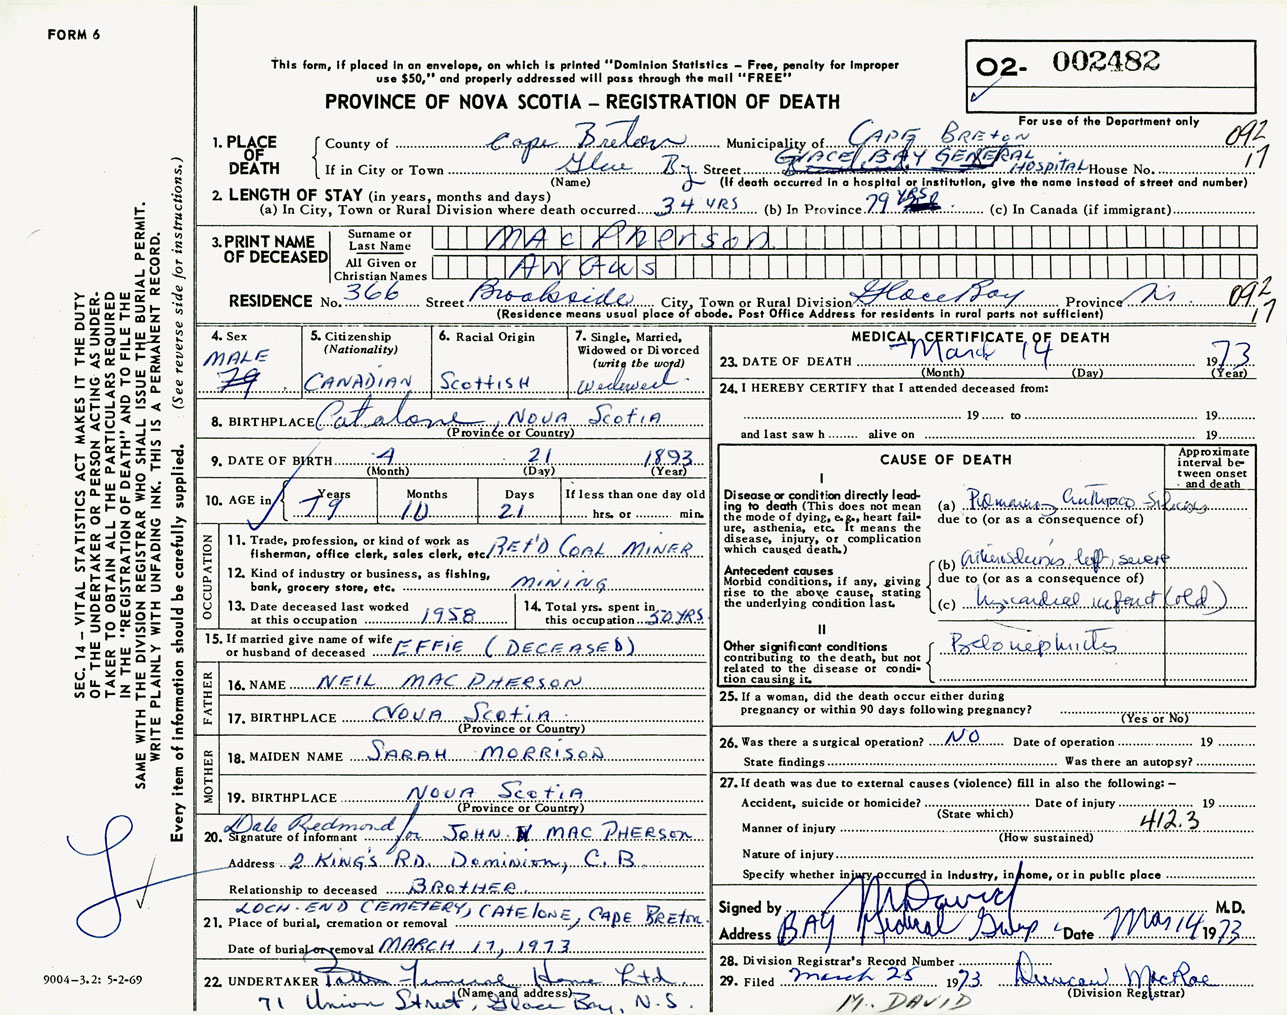 FORM 6
This form, if placed in an envelope, on which is printed "Dominion Statistics – Free, penalty for improper
use $50," and properly addressed will pass through the mail "FREE"
PROVINCE OF NOVA SCOTIA – REGISTRATION OF DEATH
O2- 002482
For use of the Department only
1. PLACE OF DEATH
County of Cape Breton Municipality of CAPE BRETON 092
If in City or Town Glace Bay Street GLACE BAY GENERAL HOSPITAL House No. 17
(Name) (If death occurred in a hospital or institution, give the name instead of street and number)
2. LENGTH OF STAY (in years, months and days)
(a) In City, Town or Rural Division where death occurred 34 YRS (b) In Province 79 YRS (c) In Canada (if immigrant)
3. PRINT NAME OF DECEASED
Surname or Last Name MacPherson
All Given or Christian Names ANGUS
RESIDENCE No. 366 Street Brookside City, Town or Rural Division Glace Bay Province NS 092
(Residence means usual place of abode. Post Office Address for residents in rural parts not sufficient) 17
4. Sex
MALE
79
5. Citizenship
(Nationality)
CANADIAN
6. Racial Origin
SCOTTISH
7. Single, Married,
Widowed or Divorced
(write the word)
Widowed
8. BIRTHPLACE Catalone, NOVA SCOTIA
(Province or Country)
9. DATE OF BIRTH 4 21 1893
(Month) (Day) (Year)
10. AGE in Years Months Days If less than one day old
79 10 21 hrs. or min.
OCCUPATION
11. Trade, profession, or kind of work as
fisherman, office clerk, sales clerk, etc. RET'D COAL MINER
12. Kind of industry or business, as fishing,
bank, grocery store, etc. MINING
13. Date deceased last worked
at this occupation 1958
14. Total yrs. spent in
this occupation 50 YRS
15. If married give name of wife
or husband of deceased EFFIE (DECEASED)
FATHER
16. NAME NEIL MAC PHERSON
17. BIRTHPLACE NOVA SCOTIA
(Province or Country)
MOTHER
18. MAIDEN NAME SARAH MORRISON
19. BIRTHPLACE NOVA SCOTIA
(Province or Country)
Dale Redmond for
20. Signature of informant JOHN N MAC PHERSON
Address 2 KING'S RD. DOMINION, C.B
Relationship to deceased BROTHER
LOCH-END CEMETERY, CATELONE, CAPE BRETON
21. Place of burial, cremation or removal
Date of burial or removal MARCH 17, 1973
22. UNDERTAKER Funeral Home Ltd.
(Name and address)
71 Union Street, Glace Bay, N.S.
MEDICAL CERTIFICATE OF DEATH
23. DATE OF DEATH March 14 1973
(Month) (Day) (Year)
24. I HEREBY CERTIFY that I attended deceased from:
19 to 19
and last saw h alive on 19
CAUSE OF DEATH
Approximate interval between onset and death
I
Disease or condition directly leading to death (This does not mean the mode of dying, e.g., heart failure, asthenia, etc. It means the disease, injury, or complication which caused death.)
(a) Pulmonary Anthraco Silicosis
due to (or as a consequence of)
Antecedent causes
Morbid conditions, if any, giving rise to the above cause, stating the underlying condition last.
(b) left, severe
due to (or as a consequence of)
(c) Myocardial infarct (old)
II
Other significant conditions
contributing to the death, but not related to the disease or condition causing it.
25. If a woman, did the death occur either during
pregnancy or within 90 days following pregnancy?
(Yes or No)
26. Was there a surgical operation? NO Date of operation 19
State findings Was there an autopsy?
27. If death was due to external causes (violence) fill in also the following: –
Accident, suicide or homicide? Date of injury 19
(State which)
Manner of injury 412.3
(How sustained)
Nature of injury
Specify whether injury occurred in industry, in home, or in public place
Signed by M David M.D.
Address BAY Medical Group Date Mar 14 1973
28. Division Registrar's Record Number
29. Filed March 25 1973 Duncan MacRae
(Division Registrar)
M. DAVID
SEC. 14 – VITAL STATISTICS ACT MAKES IT THE DUTY
OF THE UNDERTAKER OR PERSON ACTING AS UNDER-
TAKER TO OBTAIN ALL THE PARTICULARS REQUIRED
IN THE "REGISTRATION OF DEATH" AND TO FILE THE
SAME WITH THE DIVISION REGISTRAR WHO SHALL ISSUE THE BURIAL PERMIT.
WRITE PLAINLY WITH UNFADING INK. THIS IS A PERMANENT RECORD.
Every item of information should be carefully supplied. (See reverse side for instructions.)
9004-3.2: 5-2-69